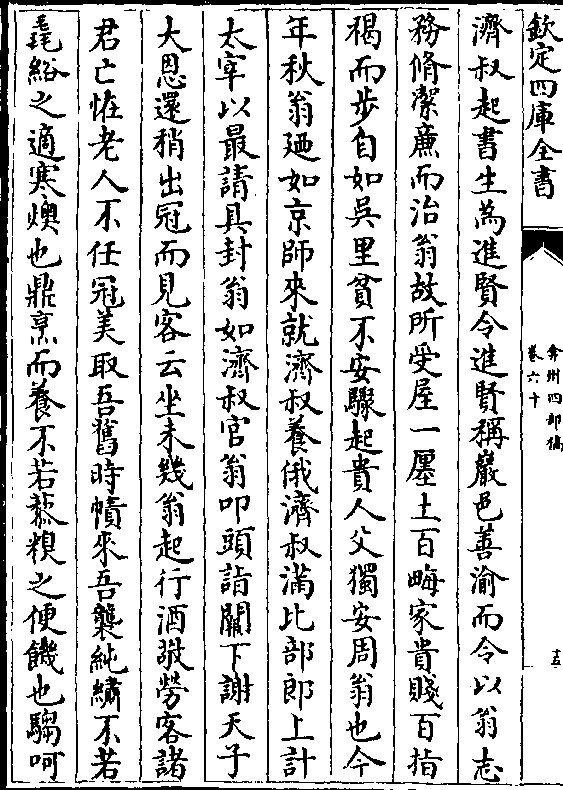 欽定四庫全書
弇州四部稿
卷六十
十五
濟叔起書生為進賢令進賢稱嚴邑善渝而令以翁志
務脩潔廉而治翁故所受屋一廛土百畮家貴賤百指
猲而步自如吳里貧不安驟起貴人父獨安周翁也今
年秋翁廼如京師來就濟叔養俄濟叔滿比部郎上計
太宰以最請具封翁如濟叔官翁叩頭詣闕下謝天子
大恩還稍出冠而見客云坐未幾翁起行酒敬勞客諸
君亡恠老人不任冠美取吾舊時幘來吾襲純繡不若
毳綌之適寒燠也鼎烹而養不若藜糗之便饑也騶呵